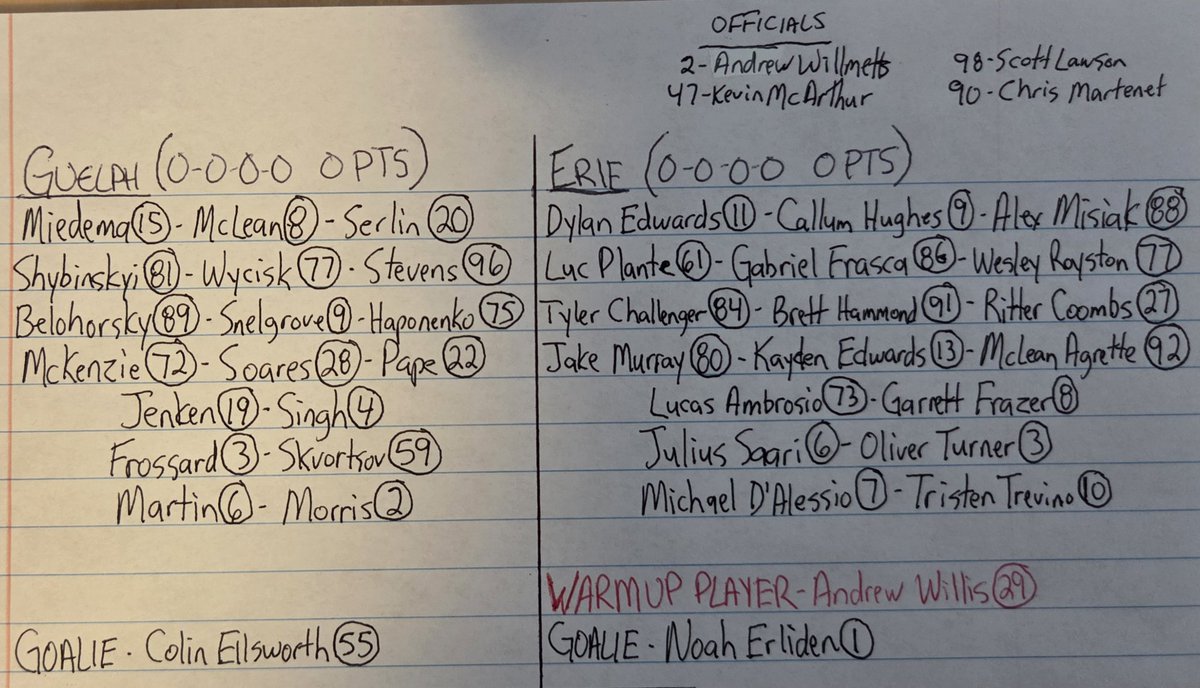 OFFICIALS
2-Andrew Willmetts
98-Scott Lawson
47-Kevin McArthur
90-Chris Martenet
GUELPH (0-0-0-0 0 PTS)
Miedema 15 - McLean 8 - Serlin 20
Shybinskyi 81 - Wycisk 77 - Stevens 96
Belohorsky 89 - Snelgrove 9 - Haponenko 75
McKenzie 72 - Soares 28 - Pape 22
Jenken 19 - Singh 4
Frossard 3 - Skvortsov 59
Martin 6 - Morris 2
GOALIE - Colin Ellsworth 55
ERIE (0-0-0-0 0 PTS)
Dylan Edwards 11 - Callum Hughes 9 - Alex Misiak 88
Luc Plante 61 - Gabriel Frasca 86 - Wesley Royston 77
Tyler Challenger 84 - Brett Hammond 91 - Ritter Coombs 27
Jake Murray 80 - Kayden Edwards 13 - McLean Agrette 92
Lucas Ambrosio 73 - Garrett Frazer 8
Julius Saari 6 - Oliver Turner 3
Michael D'Alessio 7 - Tristen Trevino 10
WARMUP PLAYER - Andrew Willis 29
GOALIE - Noah Erliden 1